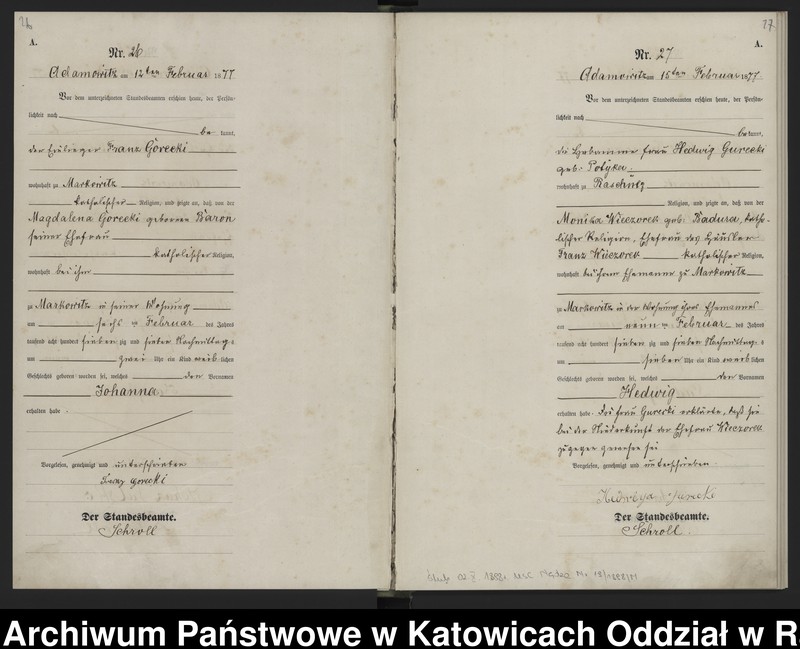 A.
Nr. 26
Adamowitz am 12ten Februar 1877
Vor dem unterzeichneten Standesbeamten erschien heute, der Persön-
lichkeit nach
be kannt,
der Einlieger Franz Gorecki
wohnhaft zu Markowitz
katholischer Religion, und zeigte an, daß von der
Magdalena Gorecki geborenen Baron
seiner Ehefrau
katholischer Religion,
wohnhaft bei ihm
zu Markowitz in seiner Wohnung
am sechs ten Februar des Jahres
tausend acht hundert sieben zig und sieben Nachmittags
um zwei Uhr ein Kind weib lichen
Geschlechts geboren worden sei, welches den Vornamen
Johanna
erhalten habe.
Vorgelesen, genehmigt und unterschrieben
Franz Gorecki
Der Standesbeamte.
Schroll
77
A.
Nr. 27
Adamowitz am 15ten Februar 1877
Vor dem unterzeichneten Standesbeamten erschien heute, der Persön-
lichkeit nach
be kannt,
die Hebamme Frau Hedwig Gurecki
geb. Potyka
wohnhaft zu Raschütz
Religion, und zeigte an, daß von der
Monika Wieczorek geb. Badura, katho-
lischer Religion, Ehefrau des Häusler
Franz Wieczorek katholischer Religion,
wohnhaft bei ihrem Ehemanne zu Markowitz
zu Markowitz in der Wohnung ihres Ehemannes
am neun ten Februar des Jahres
tausend acht hundert sieben zig und sieben Nachmittags
um sieben Uhr ein Kind weib lichen
Geschlechts geboren worden sei, welches den Vornamen
Hedwig
erhalten habe. Die Frau Gurecki erklärte, daß sie
bei der Niederkunft der Ehefrau Wieczorek
zugegen gewesen sei
Vorgelesen, genehmigt und unterschrieben
Der Standesbeamte.
Schroll.
Archiwum Państwowe w Katowicach Oddział w R